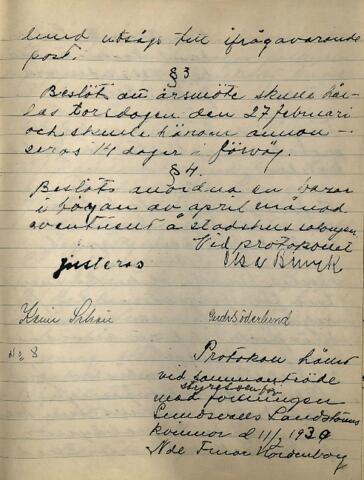 lund utsågs till ifrågavarande
post.
§ 3
Beslöts att årsmöte skulle hål-
las torsdagen den 27 februari
och skulle härom annon-
seras 14 dagar i förväg.
§ 4.
Beslöts anordna en bazar
i början av april månad
eventuellt å stadshussalongen
Vid protokollet
justeras
Gerda Söderlund
No 8
Protokoll hållet
vid sammanträde
styrelsen för
med föreningen
Sundsvalls Landstorms
kvinnor d 11/1 1939
Nde Fruar Nordenborg